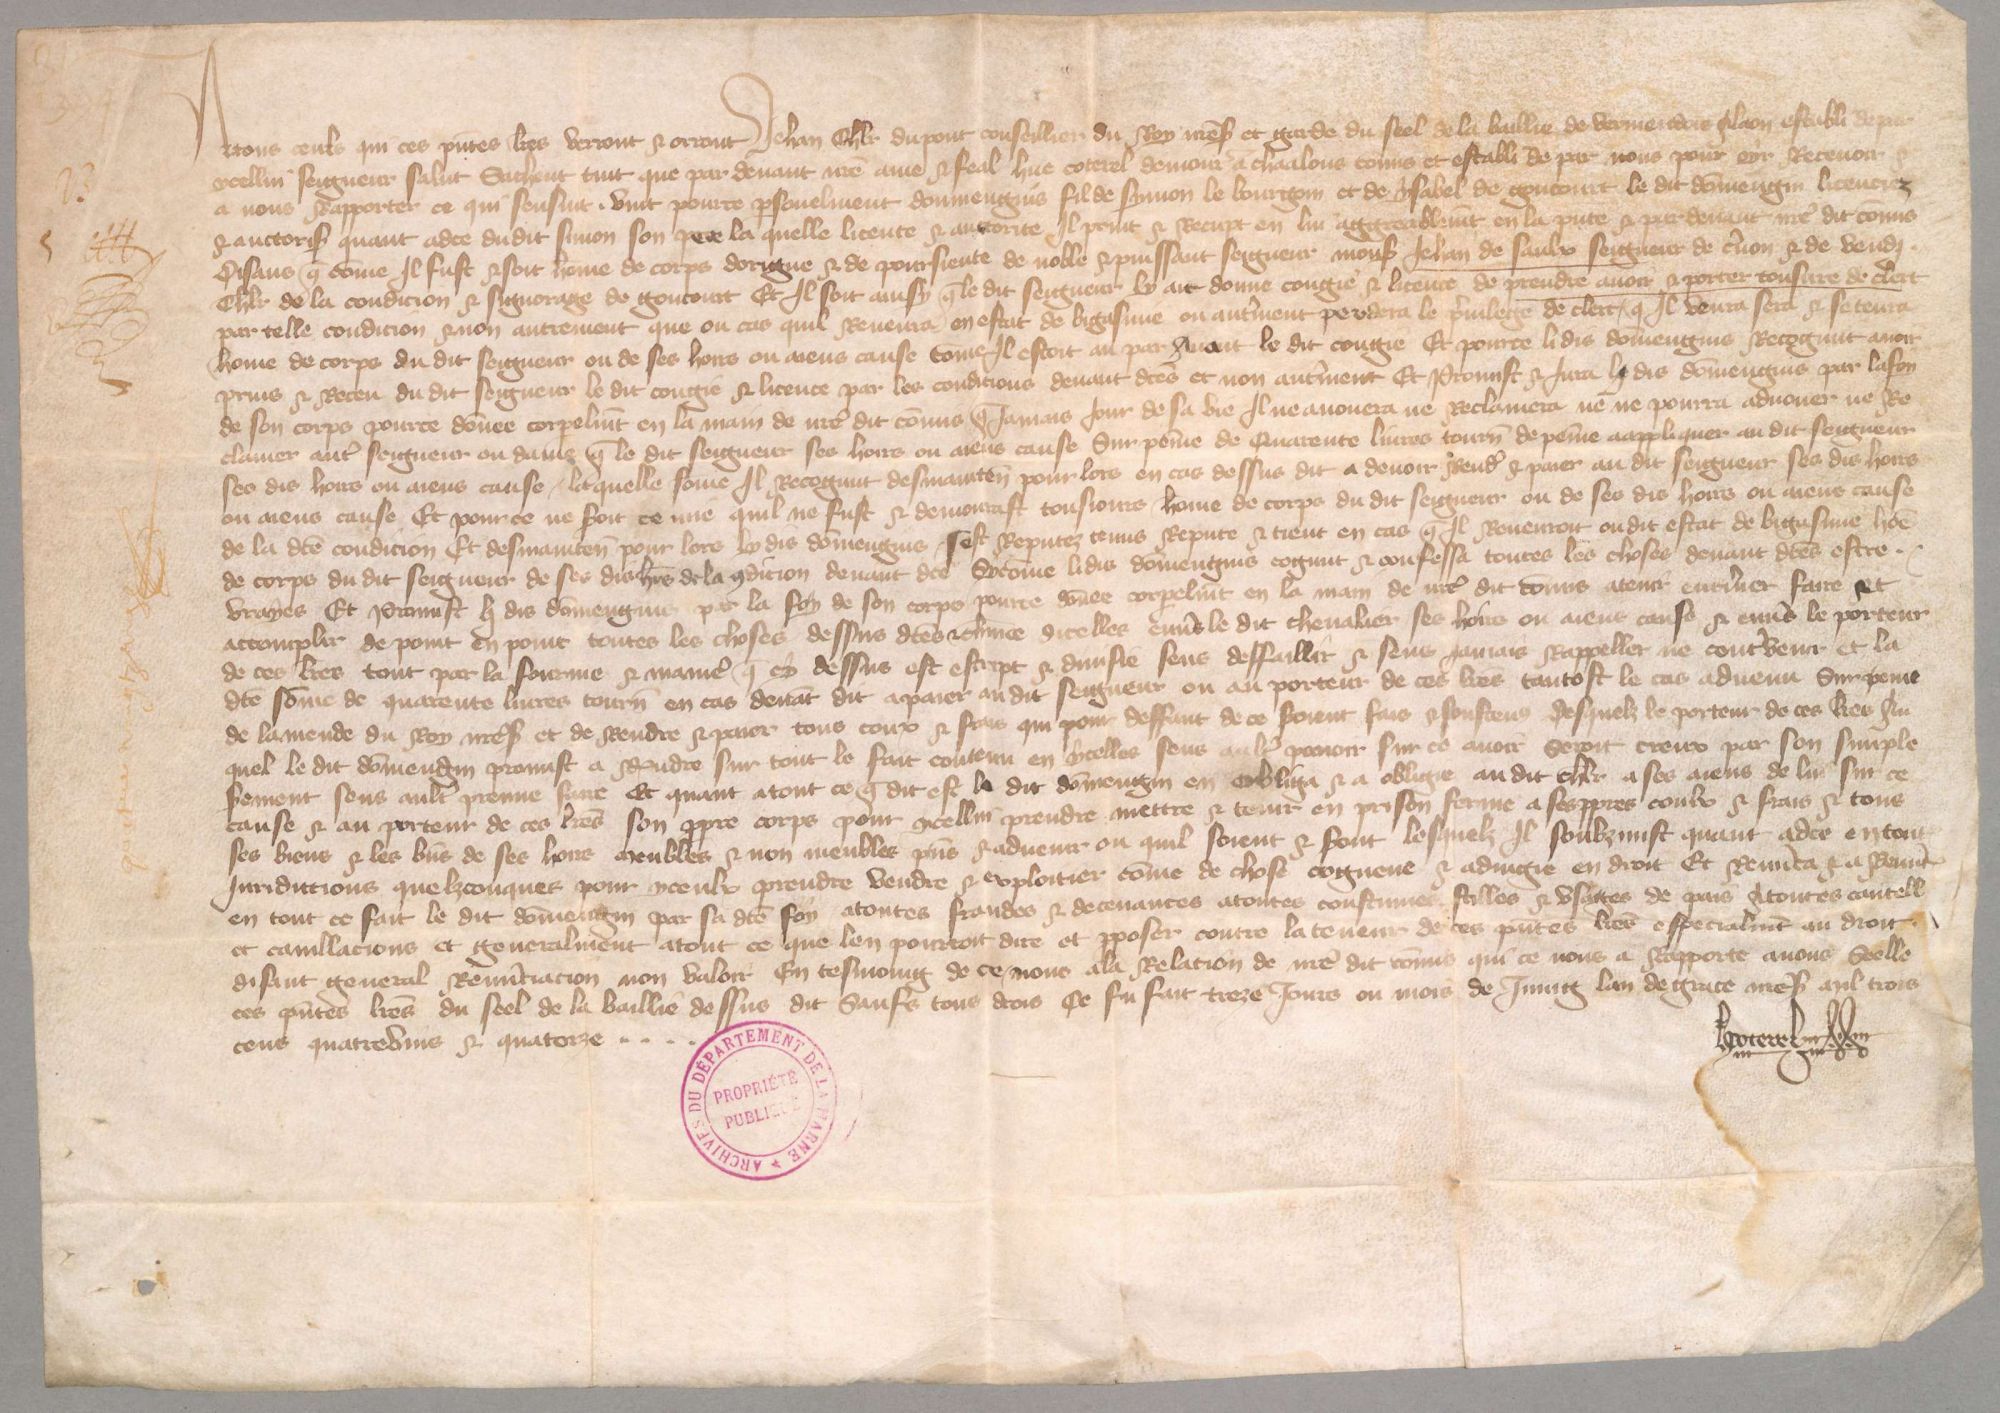 A tous ceulx qui ces pntes lres verront & orront Jehan Chlr du pont conseillier du Roy nres et garde du seel de la baillie de vermendois a laon establi de par
ycellui seigneur salut Sachent tuit que par devant nre ame & feal hue coterel demour a chaalons comis et establi de par nous pour oyr Recevoir &
a nous Rapporter ce qui sensuit. vint pource psonelment domengins fil de symon le bourgoin et de ysabel de goncourt le dit domengin licenciez
& auctoris quant adce du dit simon son pere la quelle licence & auctorite Il print & Recupt en lui aggreablemt en la pnte & par devant nre dit comis
Disans q come Il fust & soit home de corps dorigne & de poursiente de noble & puissant seigneur mons Jehan de saulx seigneur de & de
Chlr de la condicion & signorage de goncourt Et Il soit ainsy q le dit seigneur ly ait donne congie & licence de prendre avoir & porter tonsure de clerc
par telle condicion & non autrement que ou cas quil Revenra en estat de bigamme ou autment perdera le privilege de clerc q Il venra sera & se tenra
home de corps du dit seigneur ou de ses hoirs ou aiens cause come Il estoit au par Avant le dit congie Et pource li dis domengins Recognut avoir
prins & Receu du dit seigneur le dit congie & licence par les condicions devant dces et non autment Et Promist & Jura ly dis domengins par la foy
de son corps pource donee corpelmt en la main de nre dit comis q Jamais Jour de sa vie Il ne avouera ne Reclamera ne ne pourra advouer ne Re
clamer autre seigneur ou dame q le dit seigneur ses hoirs ou aiens cause Sur peine de Quarente livres tourn de peine a appliquer au dit seigneur
ses dis hoirs ou aiens cause laquelle some Il Recognut desmainten pour lors en cas dessus dit a devoir Rendre & paier au dit seigneur ses dis hoirs
ou aiens cause Et pource ne soit ce mie quil ne fust & demourast tousiours home de corps du dit seigneur ou de ses dis hoirs ou aiens cause
de la dce condicion Et desmainten pour lors ly dis domengins sest Reputez tenus Repute & tient en cas q Il Revenroit ou dit estat de bigamme hoe
de corps du dit seigneur de ses dis hoirs de la condicion devant dce Sicome li dis domengins cognut & confessa toutes les choses devant dces estre
vrayes Et Promist ly dis domengins par la foy de son corps pource donee corpelmt en la main de nre dit comis a tenir enteriner faire Et
accomplir de point en point toutes les choses dessus dces & chune dicelles envers le dit chevalier ses hoirs ou aient cause & envers le porteur
de ces lres tout par la fourme & maniere q cy dessus est escript & devisie sens deffaillir & sens Jamais Rappeller ne contrevenir Et la
dce some de quarente livres tourn en cas devat dit a paier au dit seigneur ou au porteur de ces lres tantost le cas advenu Sur peine
de lamende du Roy nres et de Rendre & paier tous coux & frais qui pour deffaut de ce seroient fais & soustenus desquelz le porteur de ces lres Au
quel le dit domengin promist a Rendre sur tout le fait contenu en ycelles sens aultre povoir sur ce avoir seroit creux par son simple
serement sens ault preuve faire Et quant a tout ce q dit est le dit domengin en obliga & a obligie au dit chlr a ses aiens de lui sur ce
cause & au porteur de ces lres son ppre corps pour ycellui prendre mettre & tenir en prison ferme a ses ppres coulx & frais & tous
ses biens & les bns de ses hoirs meubles & non meubles pns & advenir ou quil soient & sont lesquelz Il soubzmist quant adce en tout
Juridictions quelzconques pour yceulx prendre vendre & exploitier come de chose cogneue & adiugie en droit Et Renuca & a Renuc
en tout ce fait le dit domengin par sa dce foy a toutes fraudes & decevances a toutes coustumes stilles & usaiges de pais A toutes cautell
et cavillacions et generalment a tout ce que len pourroit dire et pposer contre la teneur de ces pntes lres especialmt au droit
disant general Renunciacion non valoir En tesmoing de ce nous a la Relation de nre dit comis qui ce nous a Rapporte avons Seelle
ces pntes lres du seel de la baillie dessus dit Saufs tous drois Ce fu fait treze Jours ou mois de Juing lan de grace nres mil trois
cens quatrevins & quatorze . . . .
Hcoterel
ARCHIVES DU DÉPARTEMENT DE LA MARNE
PROPRIÉTÉ
PUBLIQUE